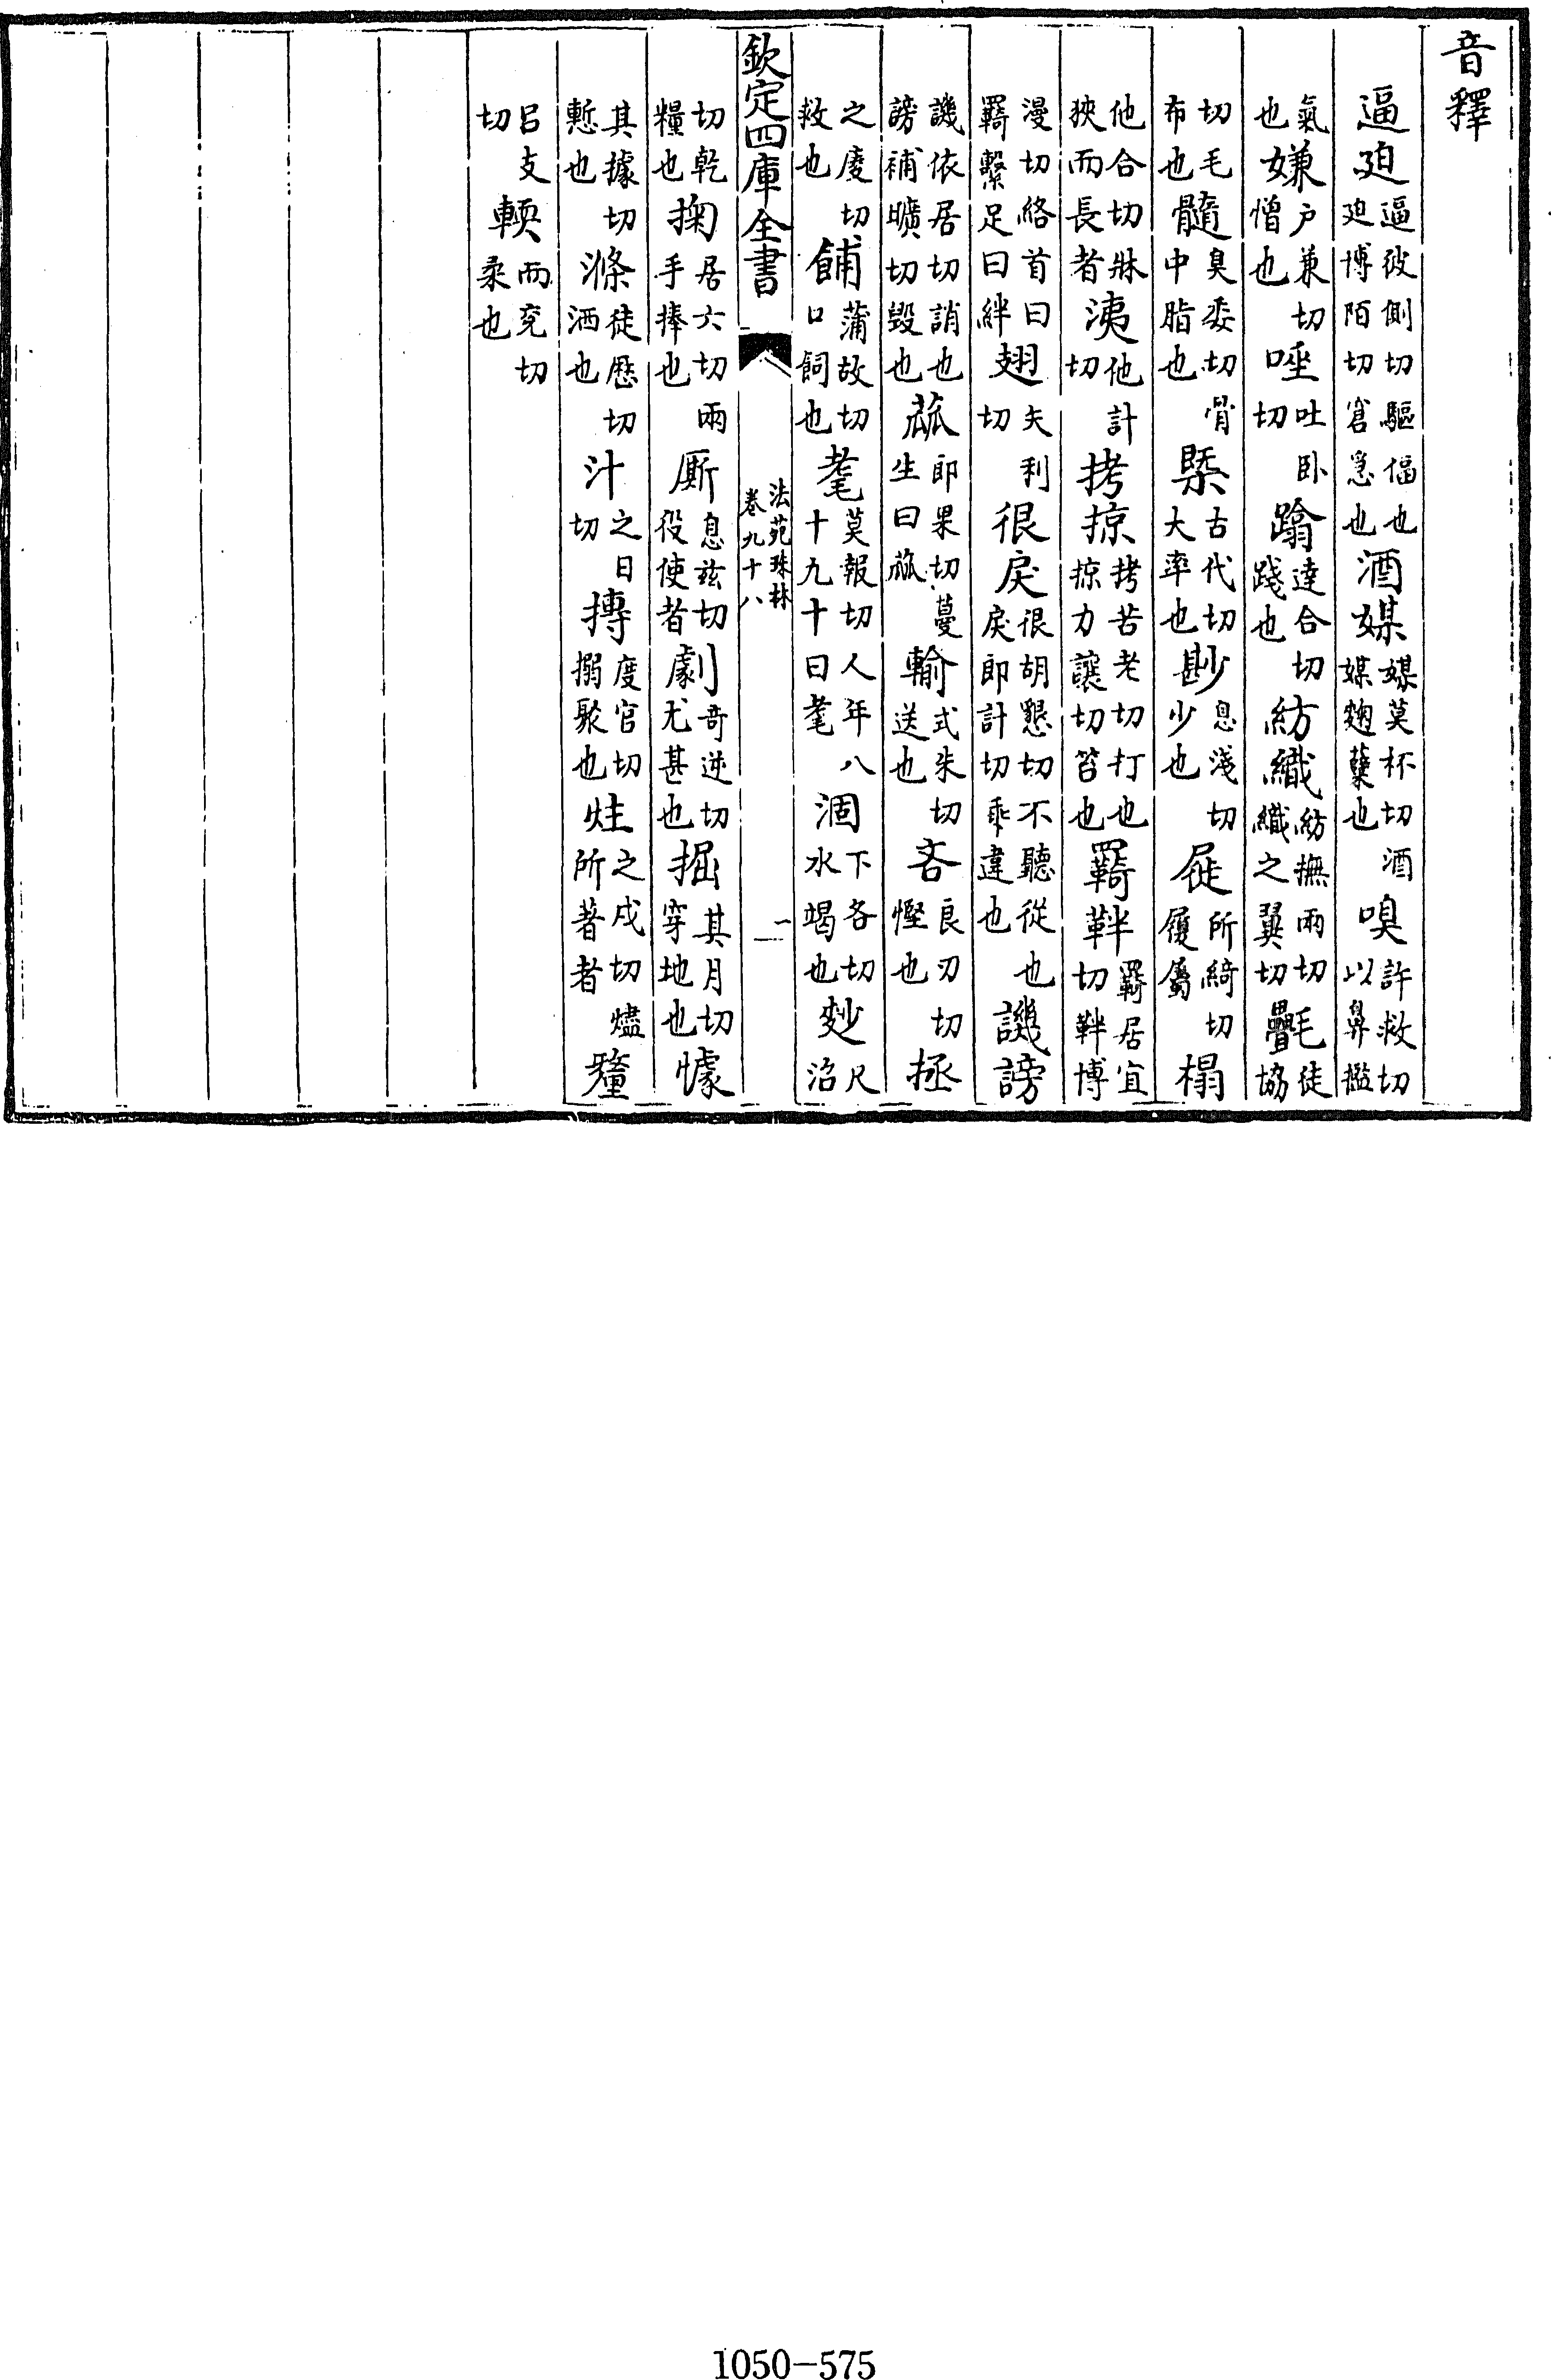 音釋
逼廹逼彼側切驅偪也廹博陌切窘急也酒媒媒莫杯切酒媒麴櫱也嗅許救切以鼻檻
氣也嫌户兼切憎也唾吐卧切蹹達合切踐也紡織紡撫兩切織之翼切㲲徒協
切毛布也髓臭委切骨中脂也槩古代切大率也尠息淺切少也屣所綺切履屬榻
他合切牀狹而長者洟他計切拷掠拷苦老切打也掠力讓切笞也羇靽羇居宜切靽博
漫切絡首曰羇繫足曰絆翅矢利切很戾很胡懇切不聽從也戾郎計切乖違也譏謗
譏依居切誚也謗補曠切毁也蓏郎果切蔓生曰蓏輸式朱切送也吝良刃切慳也拯
之庱切救也餔蒲故切口飼也耄莫報切人年八十九十曰耄涸下各切水竭也麨尺沼
欽定四庫全書 法苑珠林 卷九十八 一
切乾糧也掬居六切兩手捧也廝息兹切役使者劇奇逆切尤甚也掘其月切穿地也懅
其據切慙也滌徒歷切洒也汁之日切摶度官切搦聚也炷之戍切燼所著者釐
吕支切輭而兖切柔也
1050-575